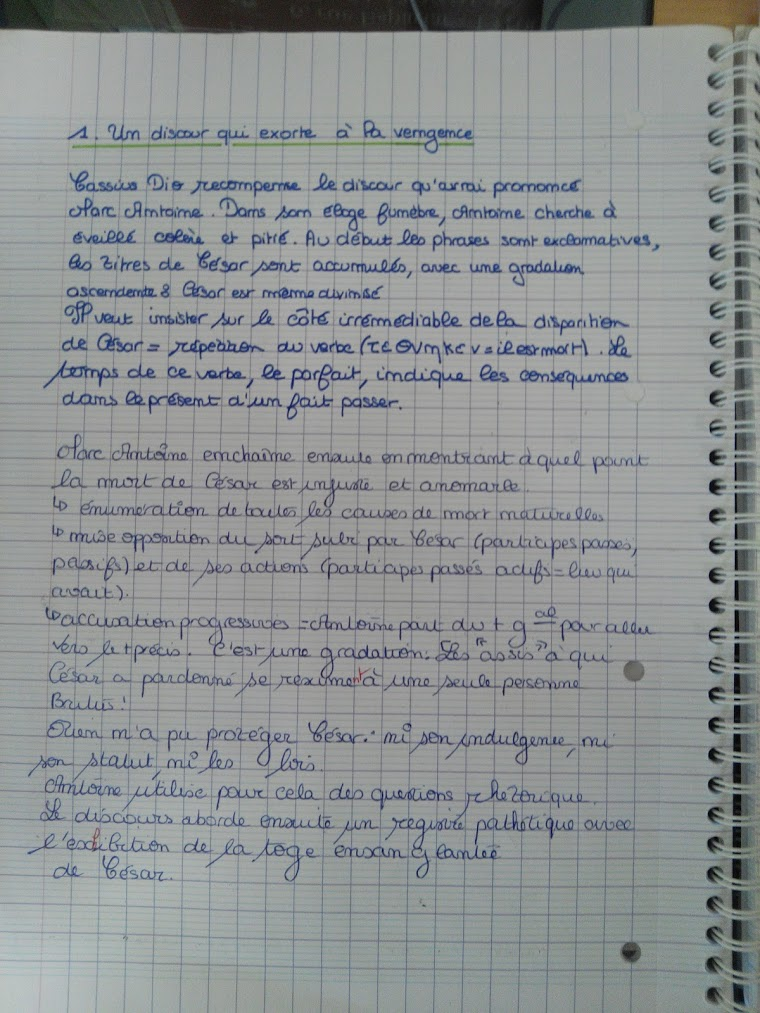 1. Un discour qui exorte à la vemgence
Cassius Dio recompense le discour qu'aurai prononcé
Marc Antoine. Dans son éloge funèbre, Antoine cherche à
éveillé colère et pitié. Au début les phrases sont exclamatives,
les titres de César sont accumulés, avec une gradation
ascendente : César est même divinisé
Il veut insister sur le côté irrémédiable de la disparition
de César = répétition du verbe (τεθνηκεν = il est mort). Le
temps de ce verbe, le parfait, indique les consequences
dans le présent d'un fait passer.
Marc Antoine enchaîne ensuite en montrant à quel point
la mort de César est injuste et anormale.
↳ énumération de toutes les causes de mort naturelles
↳ mise opposition du sort subi par César (participes passés,
passifs) et de ses actions (participes passés actifs = lieu qui
avait).
↳ accusation progressives = Antoine part du + g al pour aller
vers le + précis. C'est une gradation. Les "assis" à qui
César a pardonné se résument à une seule personne
Brutus !
Rien n'a pu protéger César : ni son indulgence, ni
son statut, ni les lois.
Antoine utilise pour cela des questions rhetorique.
Le discours aborde ensuite un registre pathétique avec
l'exhibition de la toge ensanglantée
de César.